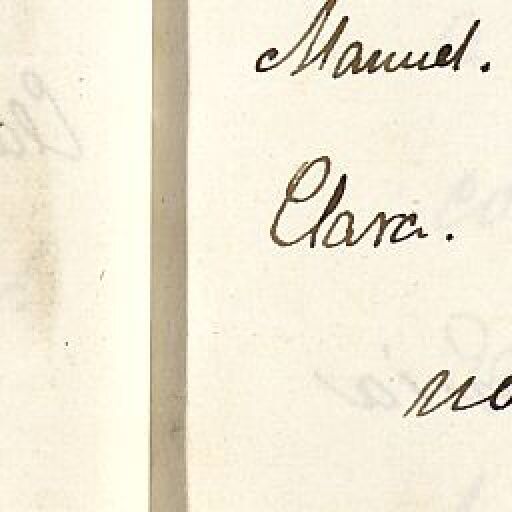 Manuel.
Clara.